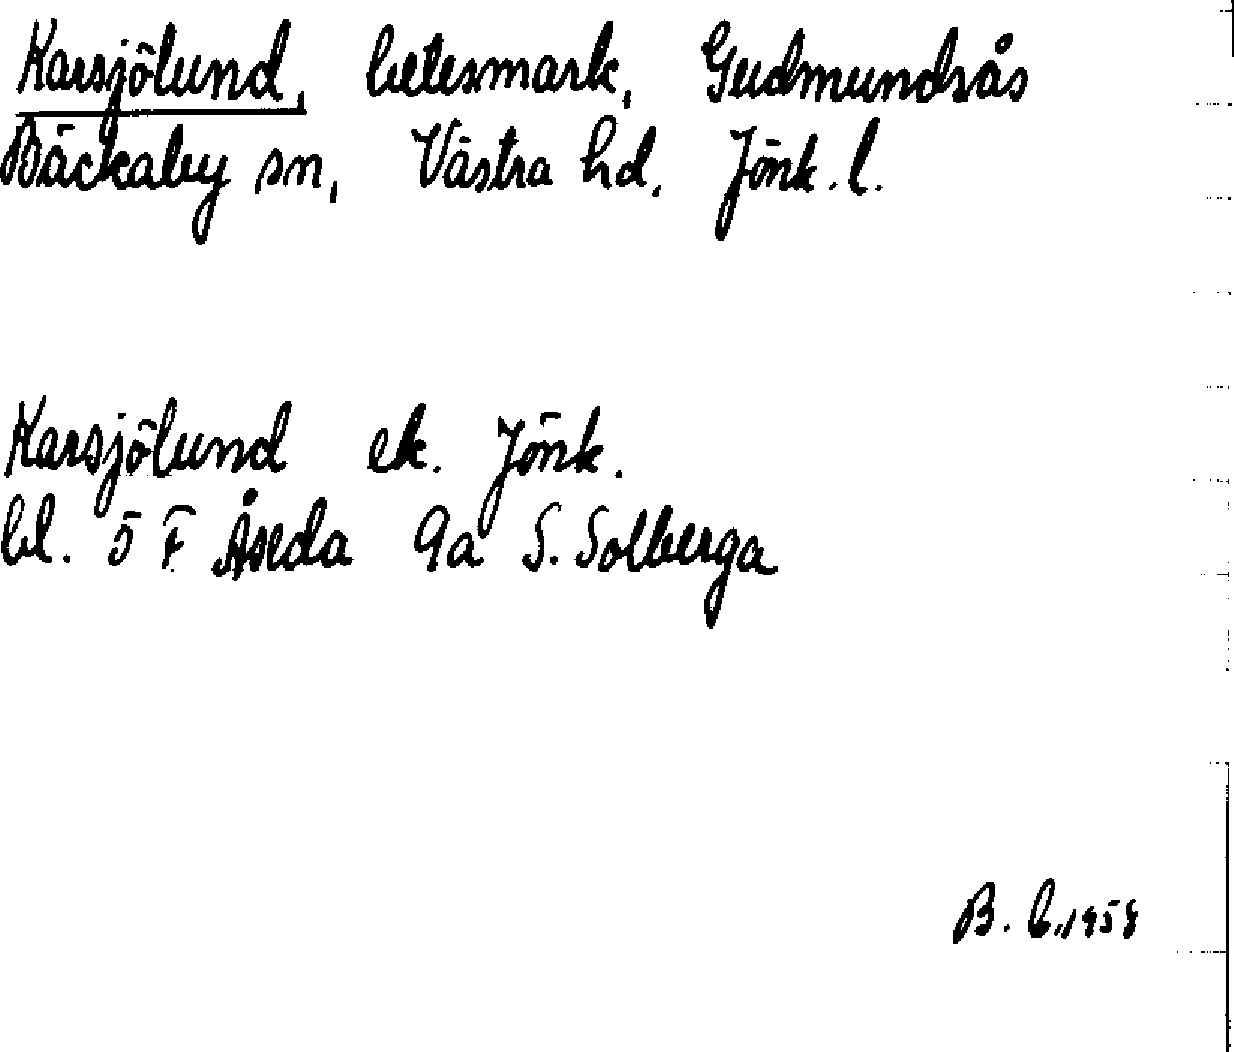 Karsjölund, betesmark, Gudmundsås
Bäckaby sn, Västra hd. Jönk. l.
Karsjölund ek. Jönk.
bl. 5 F Åseda 9a S. Solberga
B. 1958